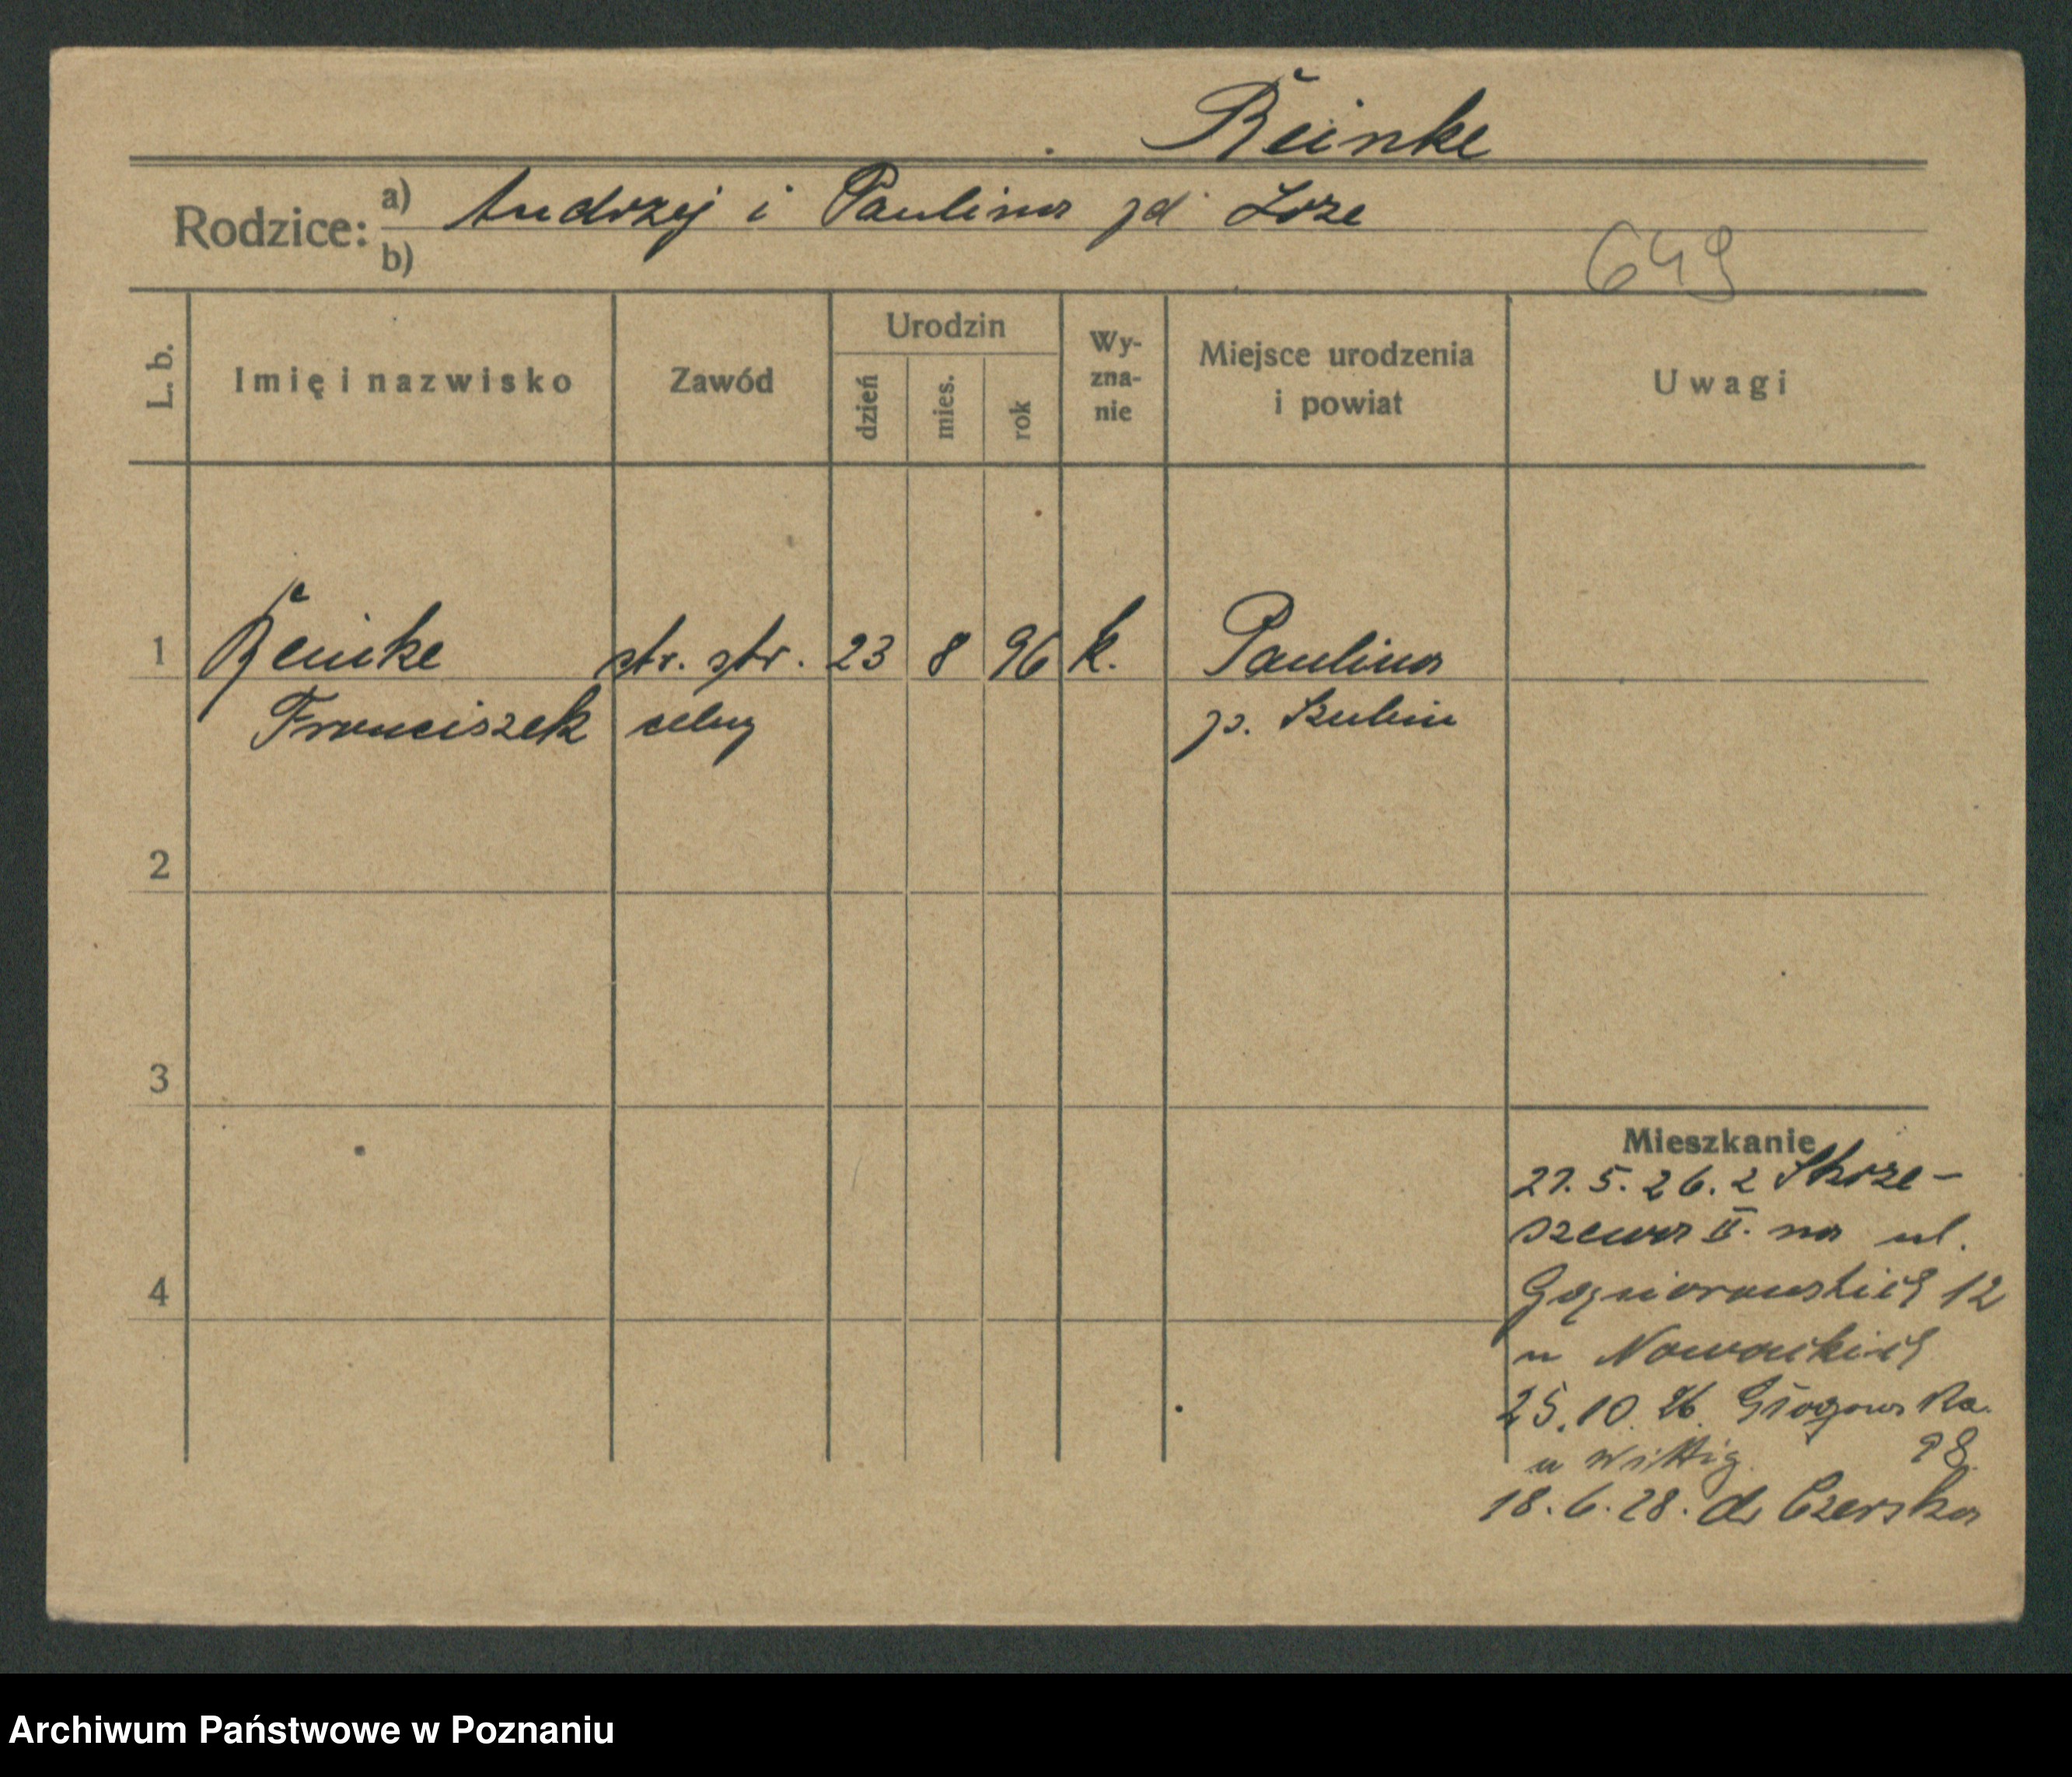 Reinke
Rodzice: a) Andrzej i Paulina zd Loze
b)
649
L. b.
Imię i nazwisko
Zawód
Urodzin
dzień
mies.
rok
Wy-
zna-
nie
Miejsce urodzenia
i powiat
Uwagi
1 Reinke str. str. 23 8 96 k. Paulina
Franciszek celny p. Szubin
2
3
4
Mieszkanie
27. 5. 26. z Skorze-
szewa II. na ul.
Gąsiorowskich 12
u Nowackich
25. 10. 26. Głogowska
98
u Wittig
18. 6. 28. do Czerska
Archiwum Państwowe w Poznaniu